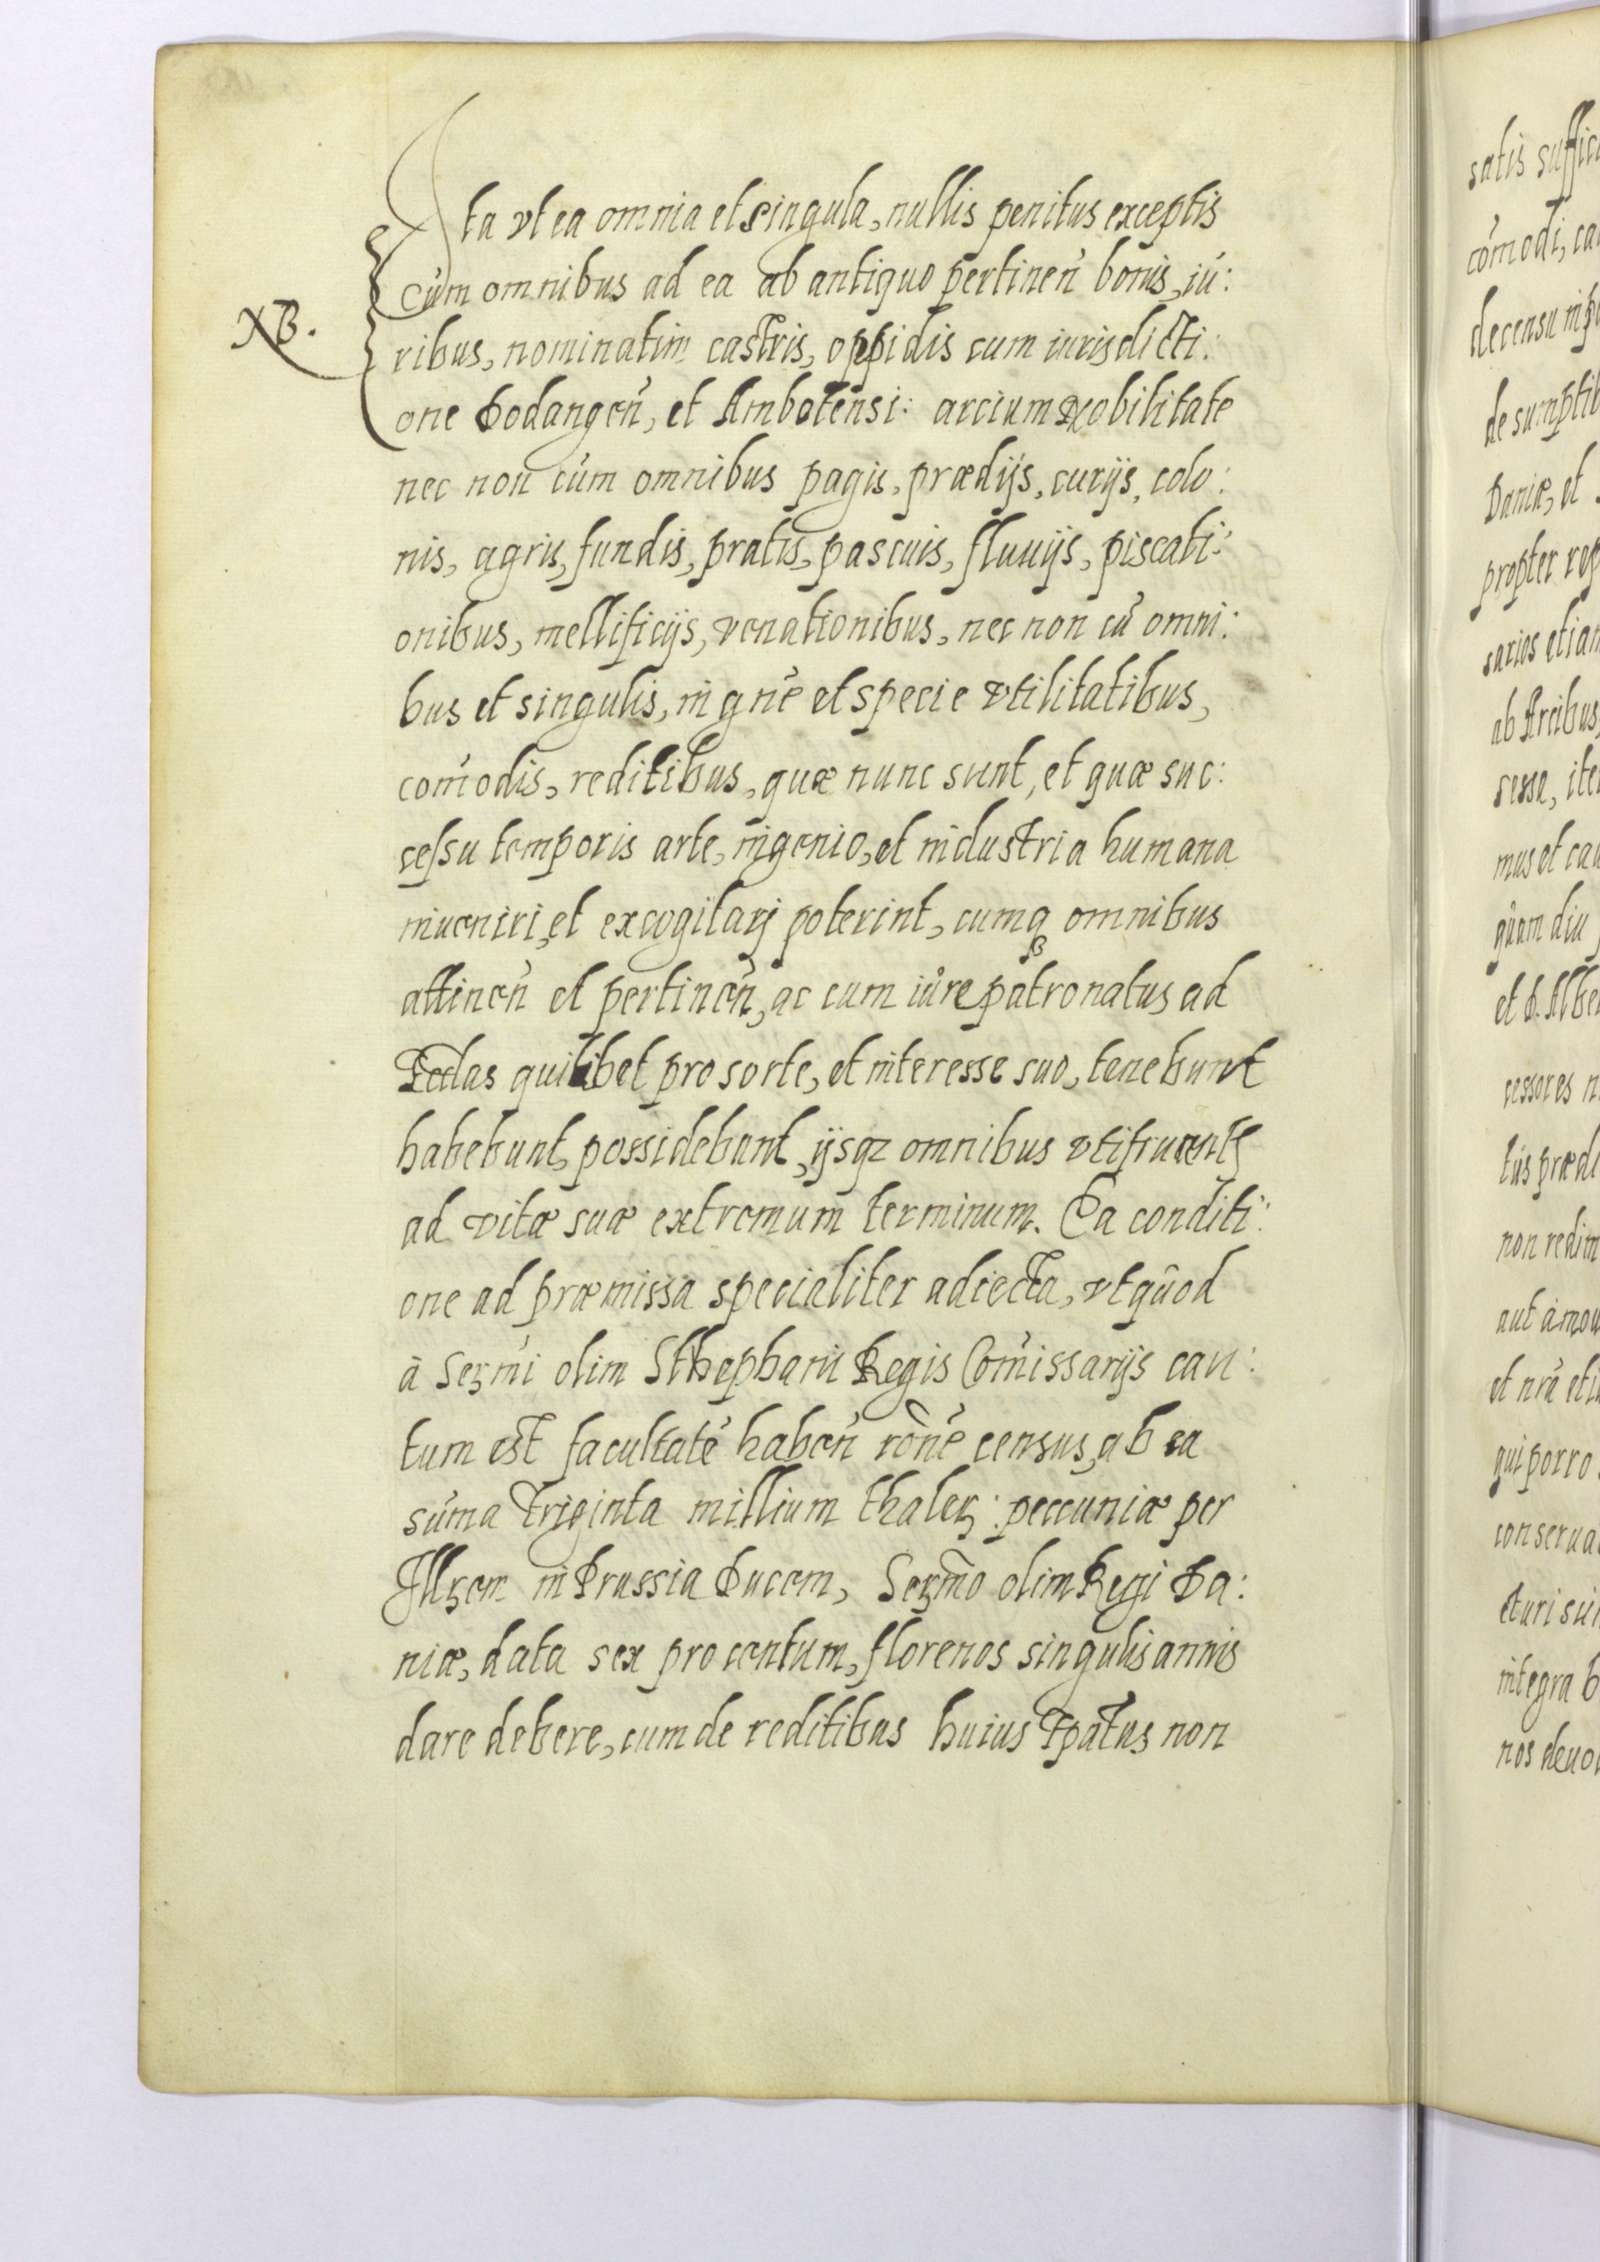 Ita vt ea omnia et singula, nullis penitus exceptis
cùm omnibus ad ea ab antiquo pertineñ bonis, iú:
XB.
ribus, nominatim castris, oppidis cum iurisdicti:
one Dodangeñ, et Ambotensi: arcium Nobilitate
nec non cùm omnibus pagis, prædijs, curijs, colo:
nis, agris, fundis, pratis, pascuis, fluuijs, piscati:
onibus, mellificijs, venationibus, nec non cū omni:
bus et singulis, in gn̄e et specie vtilitatibus,
com̄odis, reditibus, quæ nunc sunt, et quæ suc:
cessu temporis arte, ingenio, et industria humana
inueniri, et excogitarj poterint, cumqꝫ omnibus
attineñ et pertineñ, ac cum iùre patronatus ad
Eccłas quilibet pro sorte, et interesse suo, tenebunt
habebunt, possidebunt, ijsqꝫ omnibus vtifruentꝫ
ad vitæ suæ extremum terminum. Ea conditi:
one ad præmissa specialiter adiecta, vt qûod
à Serꝫm̄i olim Sthephani Regis Com̄issarijs cau:
tum est facultatē habeñ rōne census, ab ea
sūma Triginta millium thalerꝫ: peccuniæ per
Illꝫem in Prussia Ducem, Serꝫm̄o olim Regi Da:
niæ, data sex pro centum, florenos singulis annis
dare debere, cum de reditibus huius Epatus non
satis suffic
cōmodi, ca
decensu
de sumptib
Daniæ, et
propter rep
sarios etiam
ab Arcibus,
sessa, ite
mus et cau
qûam diu
et D. Albe
cessores n
tùs prædi
non redim
aut àmou
et nrā eti
qui porro
conserua
eturi sui
integra b
nos deuo